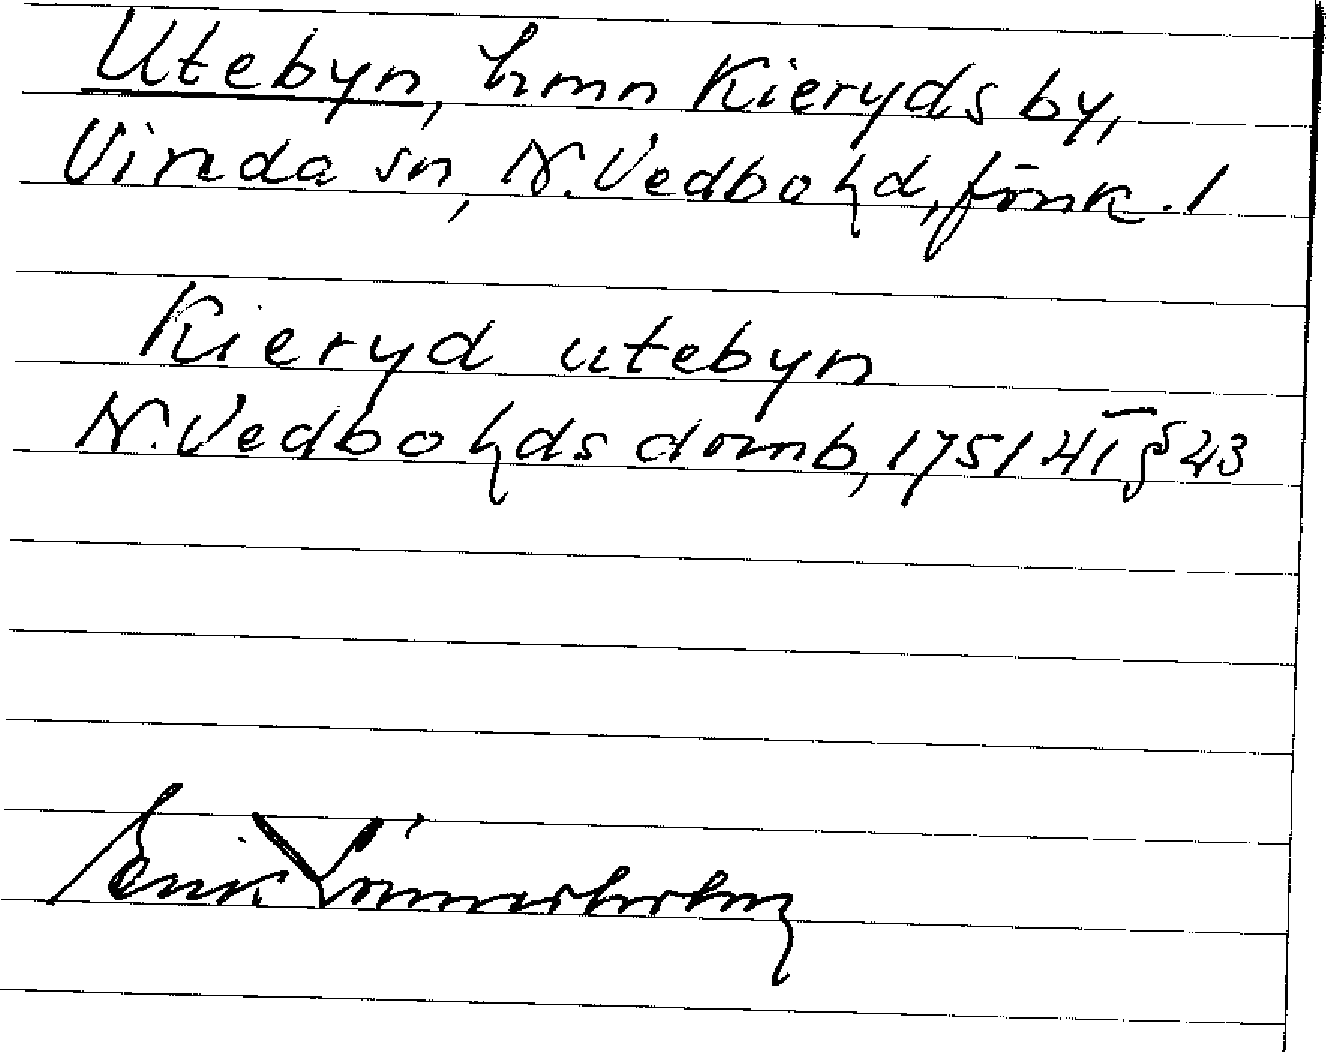 Utebyn, hmn Kieryds by,
Virda sn, N. Vedbo hd, Jönk. l
Kieryd utebyn
N. Vedbo hds domb, 1751 HT § 43
Erik